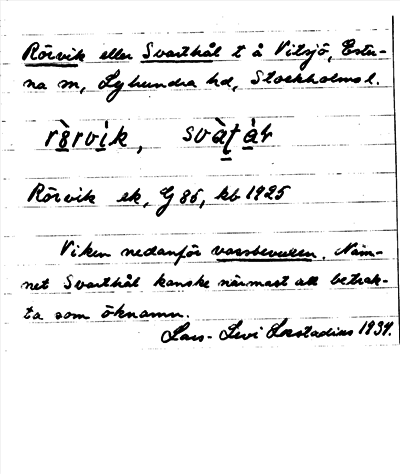 Rörvik eller Svarthål t å Vitsjö, Estu-
na sn, Lyhundra hd, Stockholms l.
rö̀rvìk, svàṭàr
Rörvik ek, G 85, kb 1925
Viken nedanför vassbevuxen. Nam-
net Svarthål kanske närmast att betrak-
ta som öknamn.
Lars-Levi Læstadius 1934.